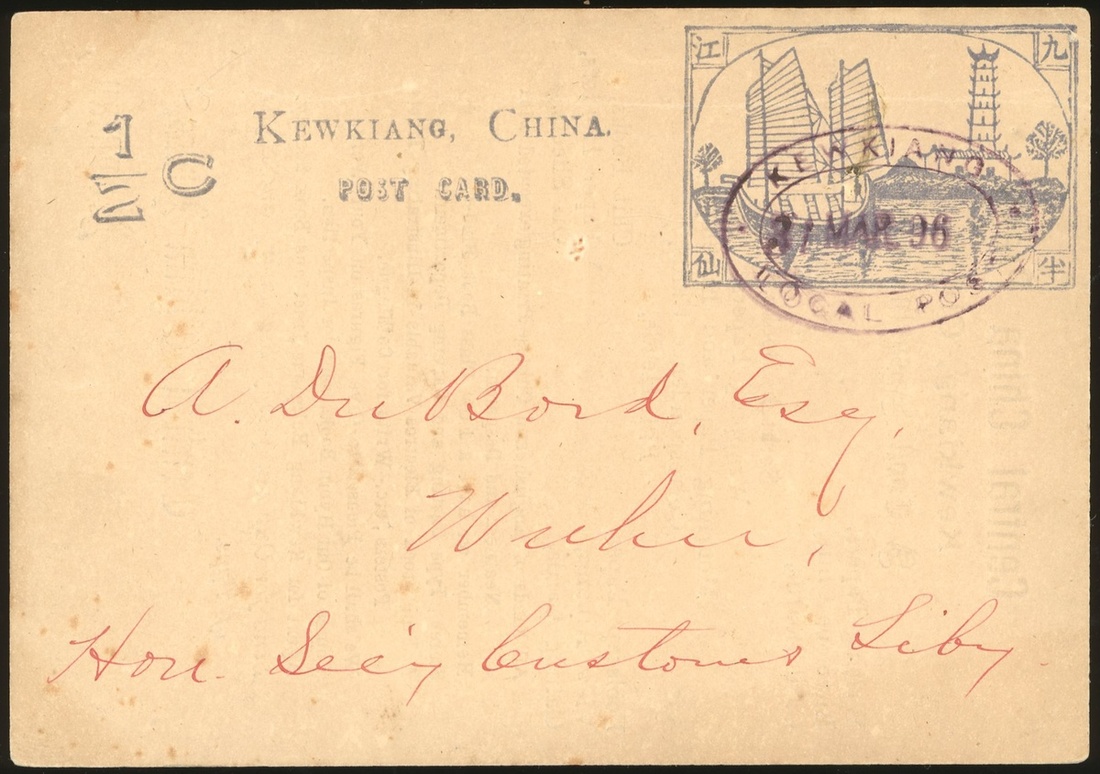 江 九
1/2 C
KEWKIANG, CHINA.
POST CARD.
仙 半
KEWKIANG
MAR 96
LOCAL POST
A. DuBord, Esq,
Wuhu,
Hon. Secy Customs Liby.